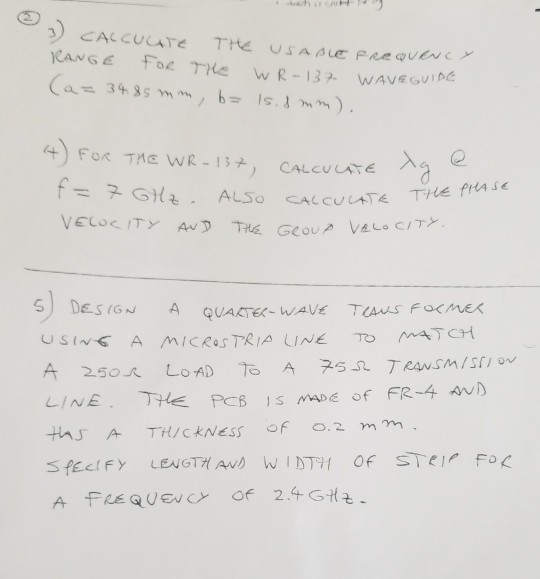 2
3) CALCULATE THE USABLE FREQUENCY
RANGE FOR THE WR-137 WAVEGUIDE
(a= 34.85 mm, b= 15.8 mm).
4) FOR THE WR-137, CALCULATE λg @
f= 7 GHz. ALSO CALCULATE THE PHASE
VELOCITY AND THE GROUP VELOCITY.
5) DESIGN A QUARTER-WAVE TRANSFORMER
USING A MICROSTRIP LINE TO MATCH
A 250Ω LOAD TO A 75Ω TRANSMISSION
LINE. THE PCB IS MADE OF FR-4 AND
HAS A THICKNESS OF 0.2 mm.
SPECIFY LENGTH AND WIDTH OF STRIP FOR
A FREQUENCY OF 2.4 GHz.